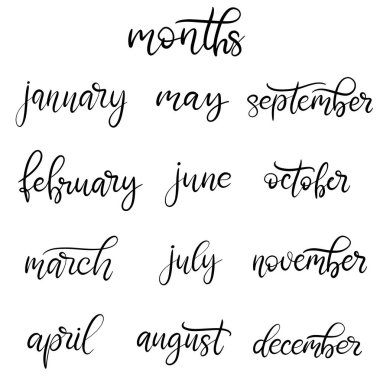 months
january may september
february june october
march july november
april august december